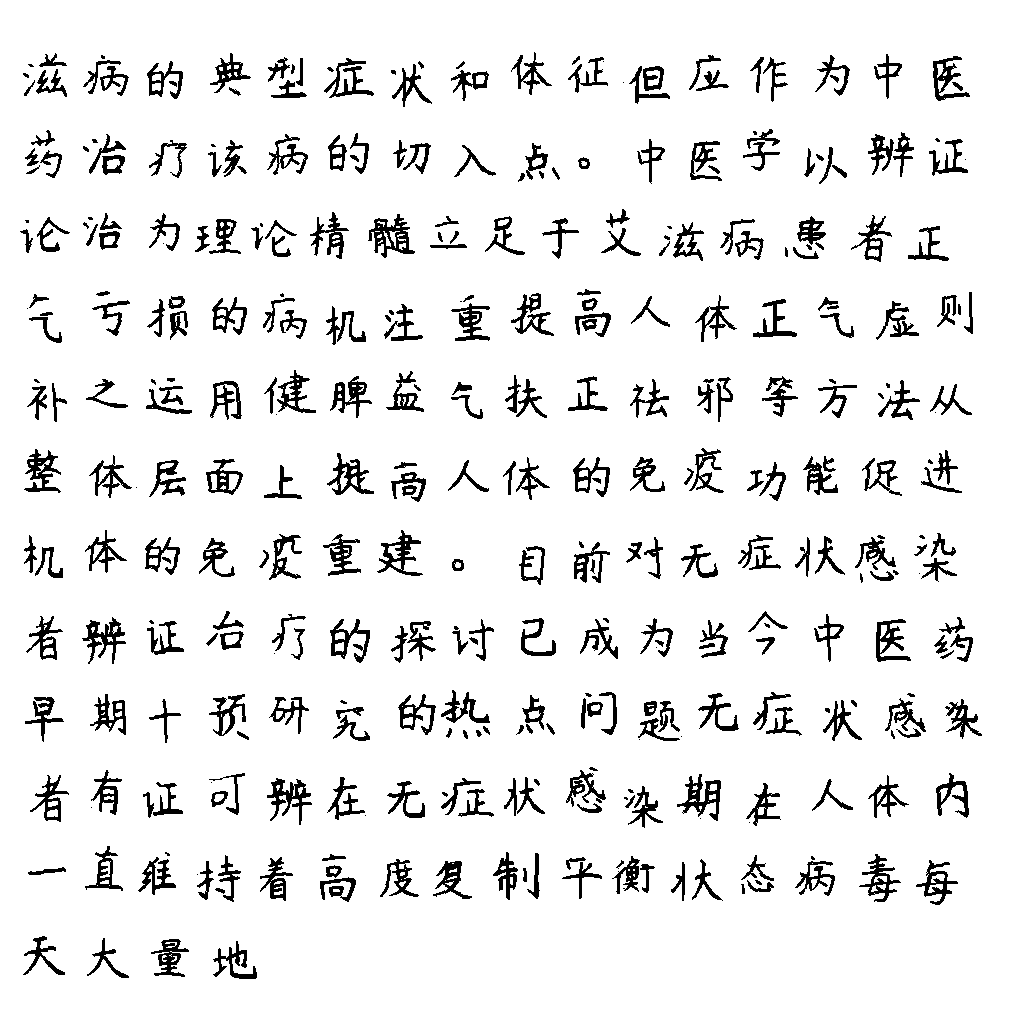 滋病的典型症状和体征但应作为中医
药治疗该病的切入点。中医学以辨证
论治为理论精髓立足于艾滋病患者正
气亏损的病机注重提高人体正气虚则
补之运用健脾益气扶正祛邪等方法从
整体层面上提高人体的免疫功能促进
机体的免疫重建。目前对无症状感染
者辨证治疗的探讨已成为当今中医药
早期干预研究的热点问题无症状感染
者有证可辨在无症状感染期在人体内
一直维持着高度复制平衡状态病毒每
天大量地